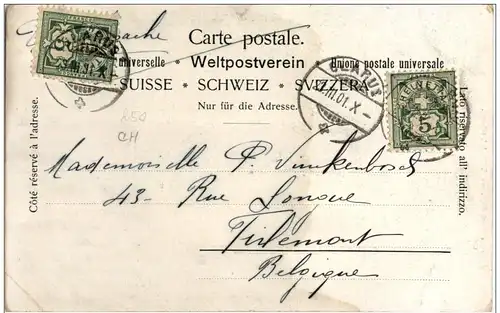 Carte postale.
universelle ★ Weltpostverein ★ Unione postale universale
SUISSE ★ SCHWEIZ ★ SVIZZERA
Nur für die Adresse.
Côté réservé à l'adresse.
Lato riservato all' indirizzo.
GLARUS
III.01.X-
HELVETIA
5
FRANCO
GLARUS
III.01.X-
CH
Mademoiselle P. Vinkenbosch
43- Rue Longue
Tirlemont
Belgique